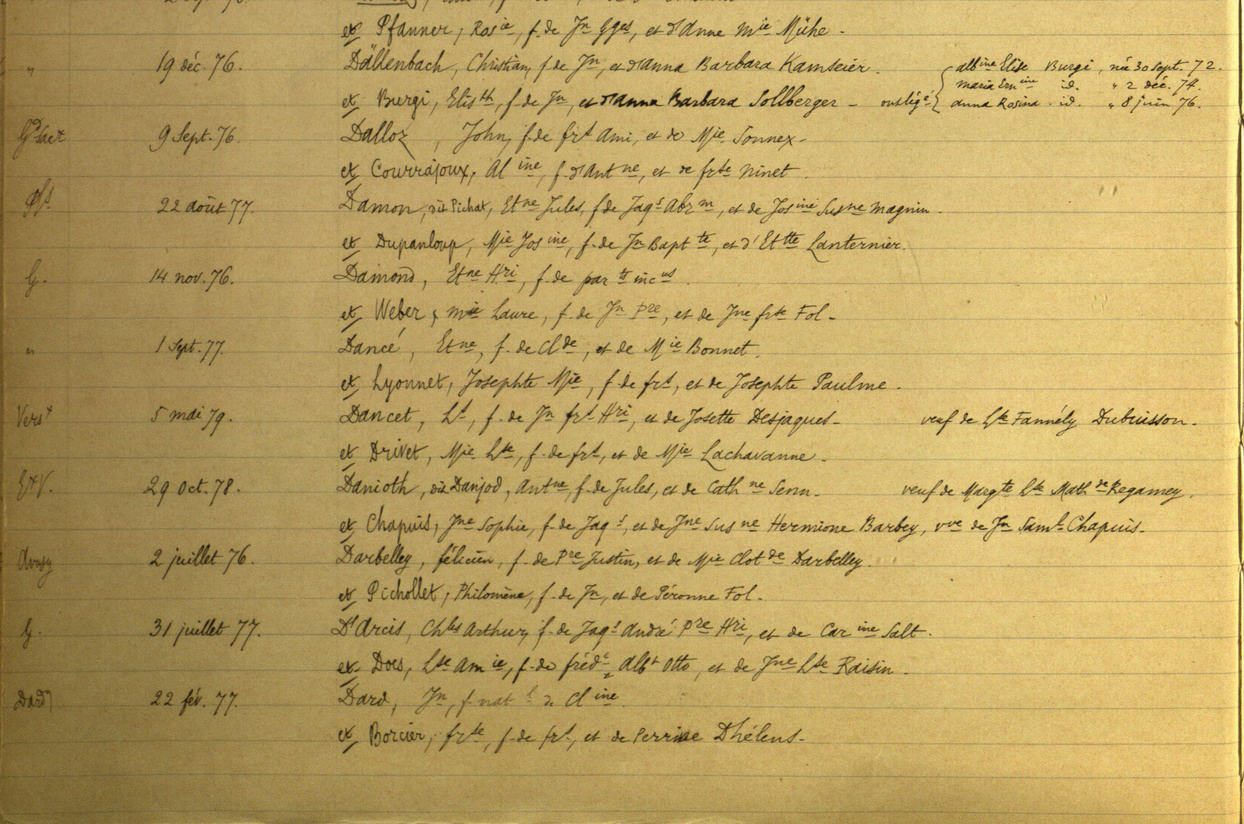 et Pfanner, Rosie, f. de Jn Gges, et d'Anne Mie Mühe.
" 19 déc. 76. Dällenbach, Christian, f. de Jn, et d'anna Barbara Kamseier. albine Elise Burgi, née 30 sept. 72.
maria Ernine id. " 2 déc. 74.
et Burgi, Elisth, f. de Jn, et d'anna Barbara Sollberger - ont légé anna Rosina id. " 8 juin 76.
9 Sept. 76. Dalloz, John, f. de frt Ami, et de Mie Sonnex.
et Courrajoux, Aline, f. d'Antne, et de frte Ninet.
22 août 77. Damon, dit Pichat, Etne Jules, f. de Jaqs Abrm, et de Josine Susne Magnin.
et Dupanloup, Mie Josine, f. de Jn Baptte, et d'Ettte Lanternier.
G. 14 nov. 76. Damond, Etne Hri, f. de parts incus.
et Weber, Mie Laure, f. de Jn Pre, et de Jne frte Fol.
" 1 Sept. 77. Dancé, Etne, f. de Clde, et de Mie Bonnet.
et Lyonnet, Josephte Mie, f. de frt, et de Josephte Paulme.
Versx 5 mai 79. Dancet, Ls, f. de Jn frt Hri, et de Josette Desjaques. veuf de Lse Fannély Dubuisson.
et Drivet, Mie Lse, f. de frt, et de Mie Lachavanne.
E.V. 29 Oct. 78. Danioth, dit Danjod, Antne, f. de Jules, et de Cathne Senn. veuf de Margte Lse Mathde Regamey.
et Chapuis, Jne Sophie, f. de Jaqs, et de Jne Susne Hermione Barbey, vve de Jn Saml Chapuis.
Avusy 2 juillet 76. Darbelley, félicien, f. de Pre Justin, et de Mie Clotde Darbelley.
et Pichollet, Philomène, f. de Jn, et de Péronne Fol.
G. 31 juillet 77. D'Arcis, Chles Arthur, f. de Jaqs André Pre Hri, et de Carine Salt.
et Does, Lse Amie, f. de frédc Albt Otto, et de Jne Lse Raisin.
Dardy 22 fév. 77. Dard, Jn, f. natl de Cline.
et Borcier, frte, f. de frt, et de Perrine Dhélens.